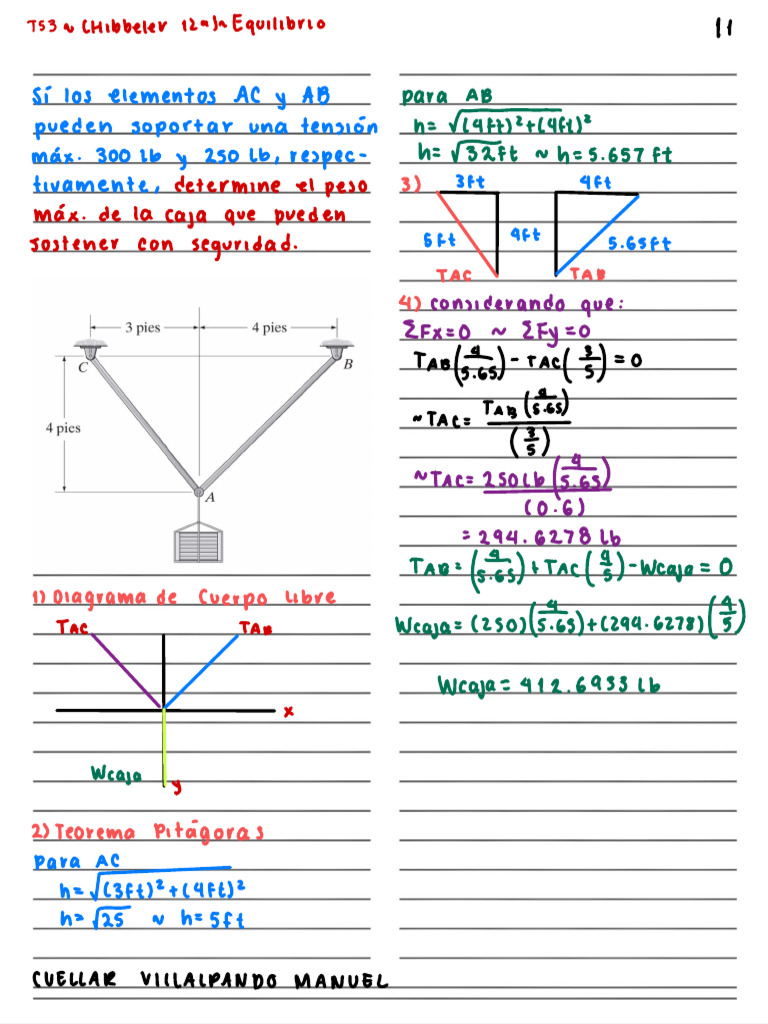 TS3 ~ (Hibbeler 12a)~ Equilibrio
11
Sí los elementos AC y AB
pueden soportar una tensión
máx. 300 lb y 250 lb, respec-
tivamente, determine el peso
máx. de la caja que pueden
sostener con seguridad.
3 pies
4 pies
C
B
4 pies
A
1) Diagrama de Cuerpo Libre
TAC
TAB
x
Wcaja
y
2) Teorema Pitágoras
para AC
h=√(3ft)²+(4ft)²
h=√25 ~ h=5ft
CUELLAR VILLALPANDO MANUEL
para AB
h=√(4ft)²+(4ft)²
h=√32ft ~ h=5.657 ft
3)
3ft
4ft
5ft
4ft
5.65ft
TAC
TAB
4) considerando que:
ΣFx=0 ~ ΣFy=0
TAB(4/5.65)-TAC(3/5)=0
~TAC= TAB(4/5.65)/(3/5)
~TAC= 250lb(4/5.65)/(0.6)
= 294.6278 lb
TAB=(4/5.65)+TAC(4/5)-Wcaja=0
Wcaja=(250)(4/5.65)+(294.6278)(4/5)
Wcaja=412.6933 lb